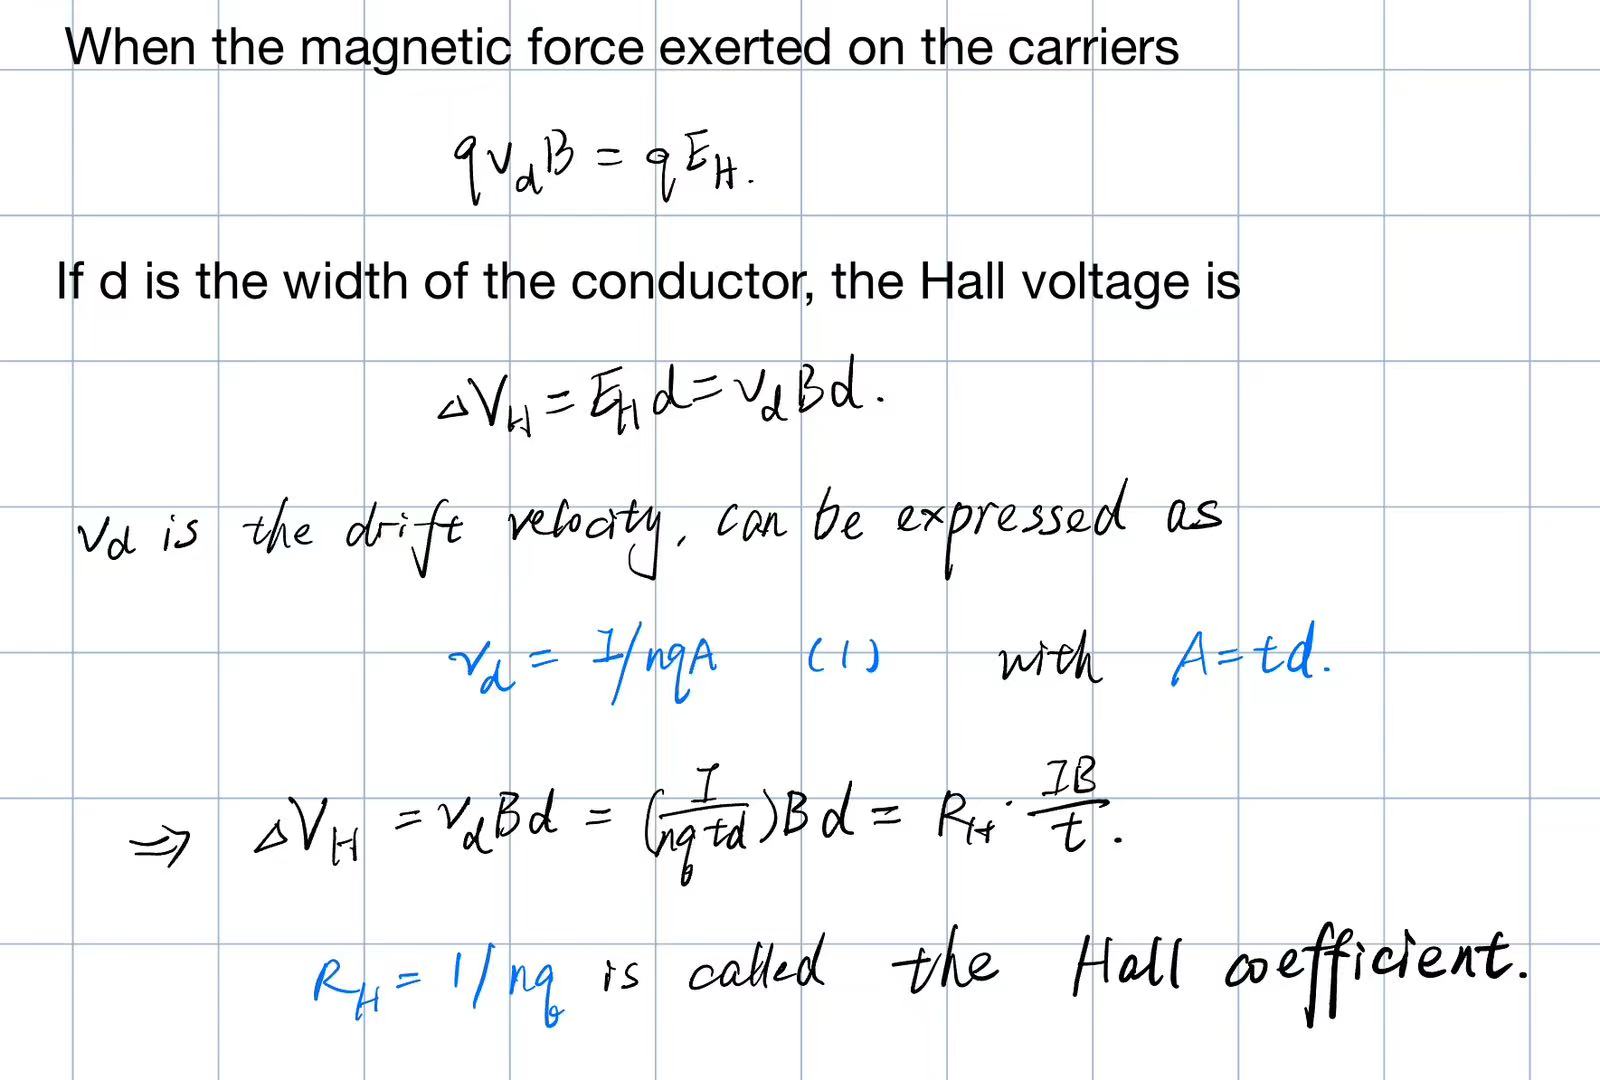 When the magnetic force exerted on the carriers
qv_dB = qE_H.
If d is the width of the conductor, the Hall voltage is
ΔV_H = E_H d = v_d B d.
v_d is the drift velocity, can be expressed as
v_d = I/nqA (1) with A = td.
⇒ ΔV_H = v_d B d = (I/nqtd) B d = R_H · IB/t.
R_H = 1/nq is called the Hall coefficient.